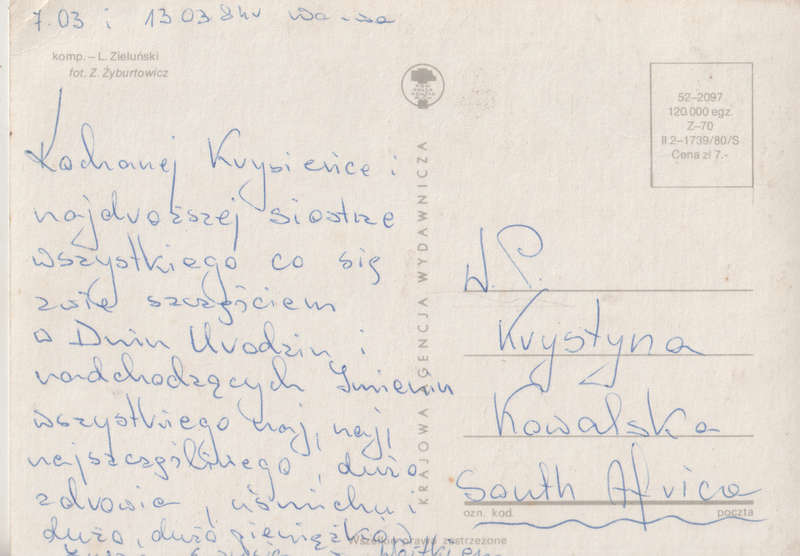 7.03 i 13 03 84r Wa-wa
komp. – L. Zieluński
fot. Z. Żyburtowicz
52–2097
120.000 egz.
Z–70
II 2–1739/80/S
Cena zł 7.-
KRAJOWA AGENCJA WYDAWNICZA
Kochanej Krysieńce i
najdroższej siostrze
wszystkiego co się
zwie szczęściem
w Dniu Urodzin i
nadchodzących Imienin
wszystkiego naj, naj,
najszczęśliwego, dużo
zdrowia, uśmiechu i
dużo, dużo pieniążków
W.P.
Krystyna
Kowalska
South Africa
ozn. kod. poczta
Wszelkie prawa zastrzeżone
z Wojtkiem